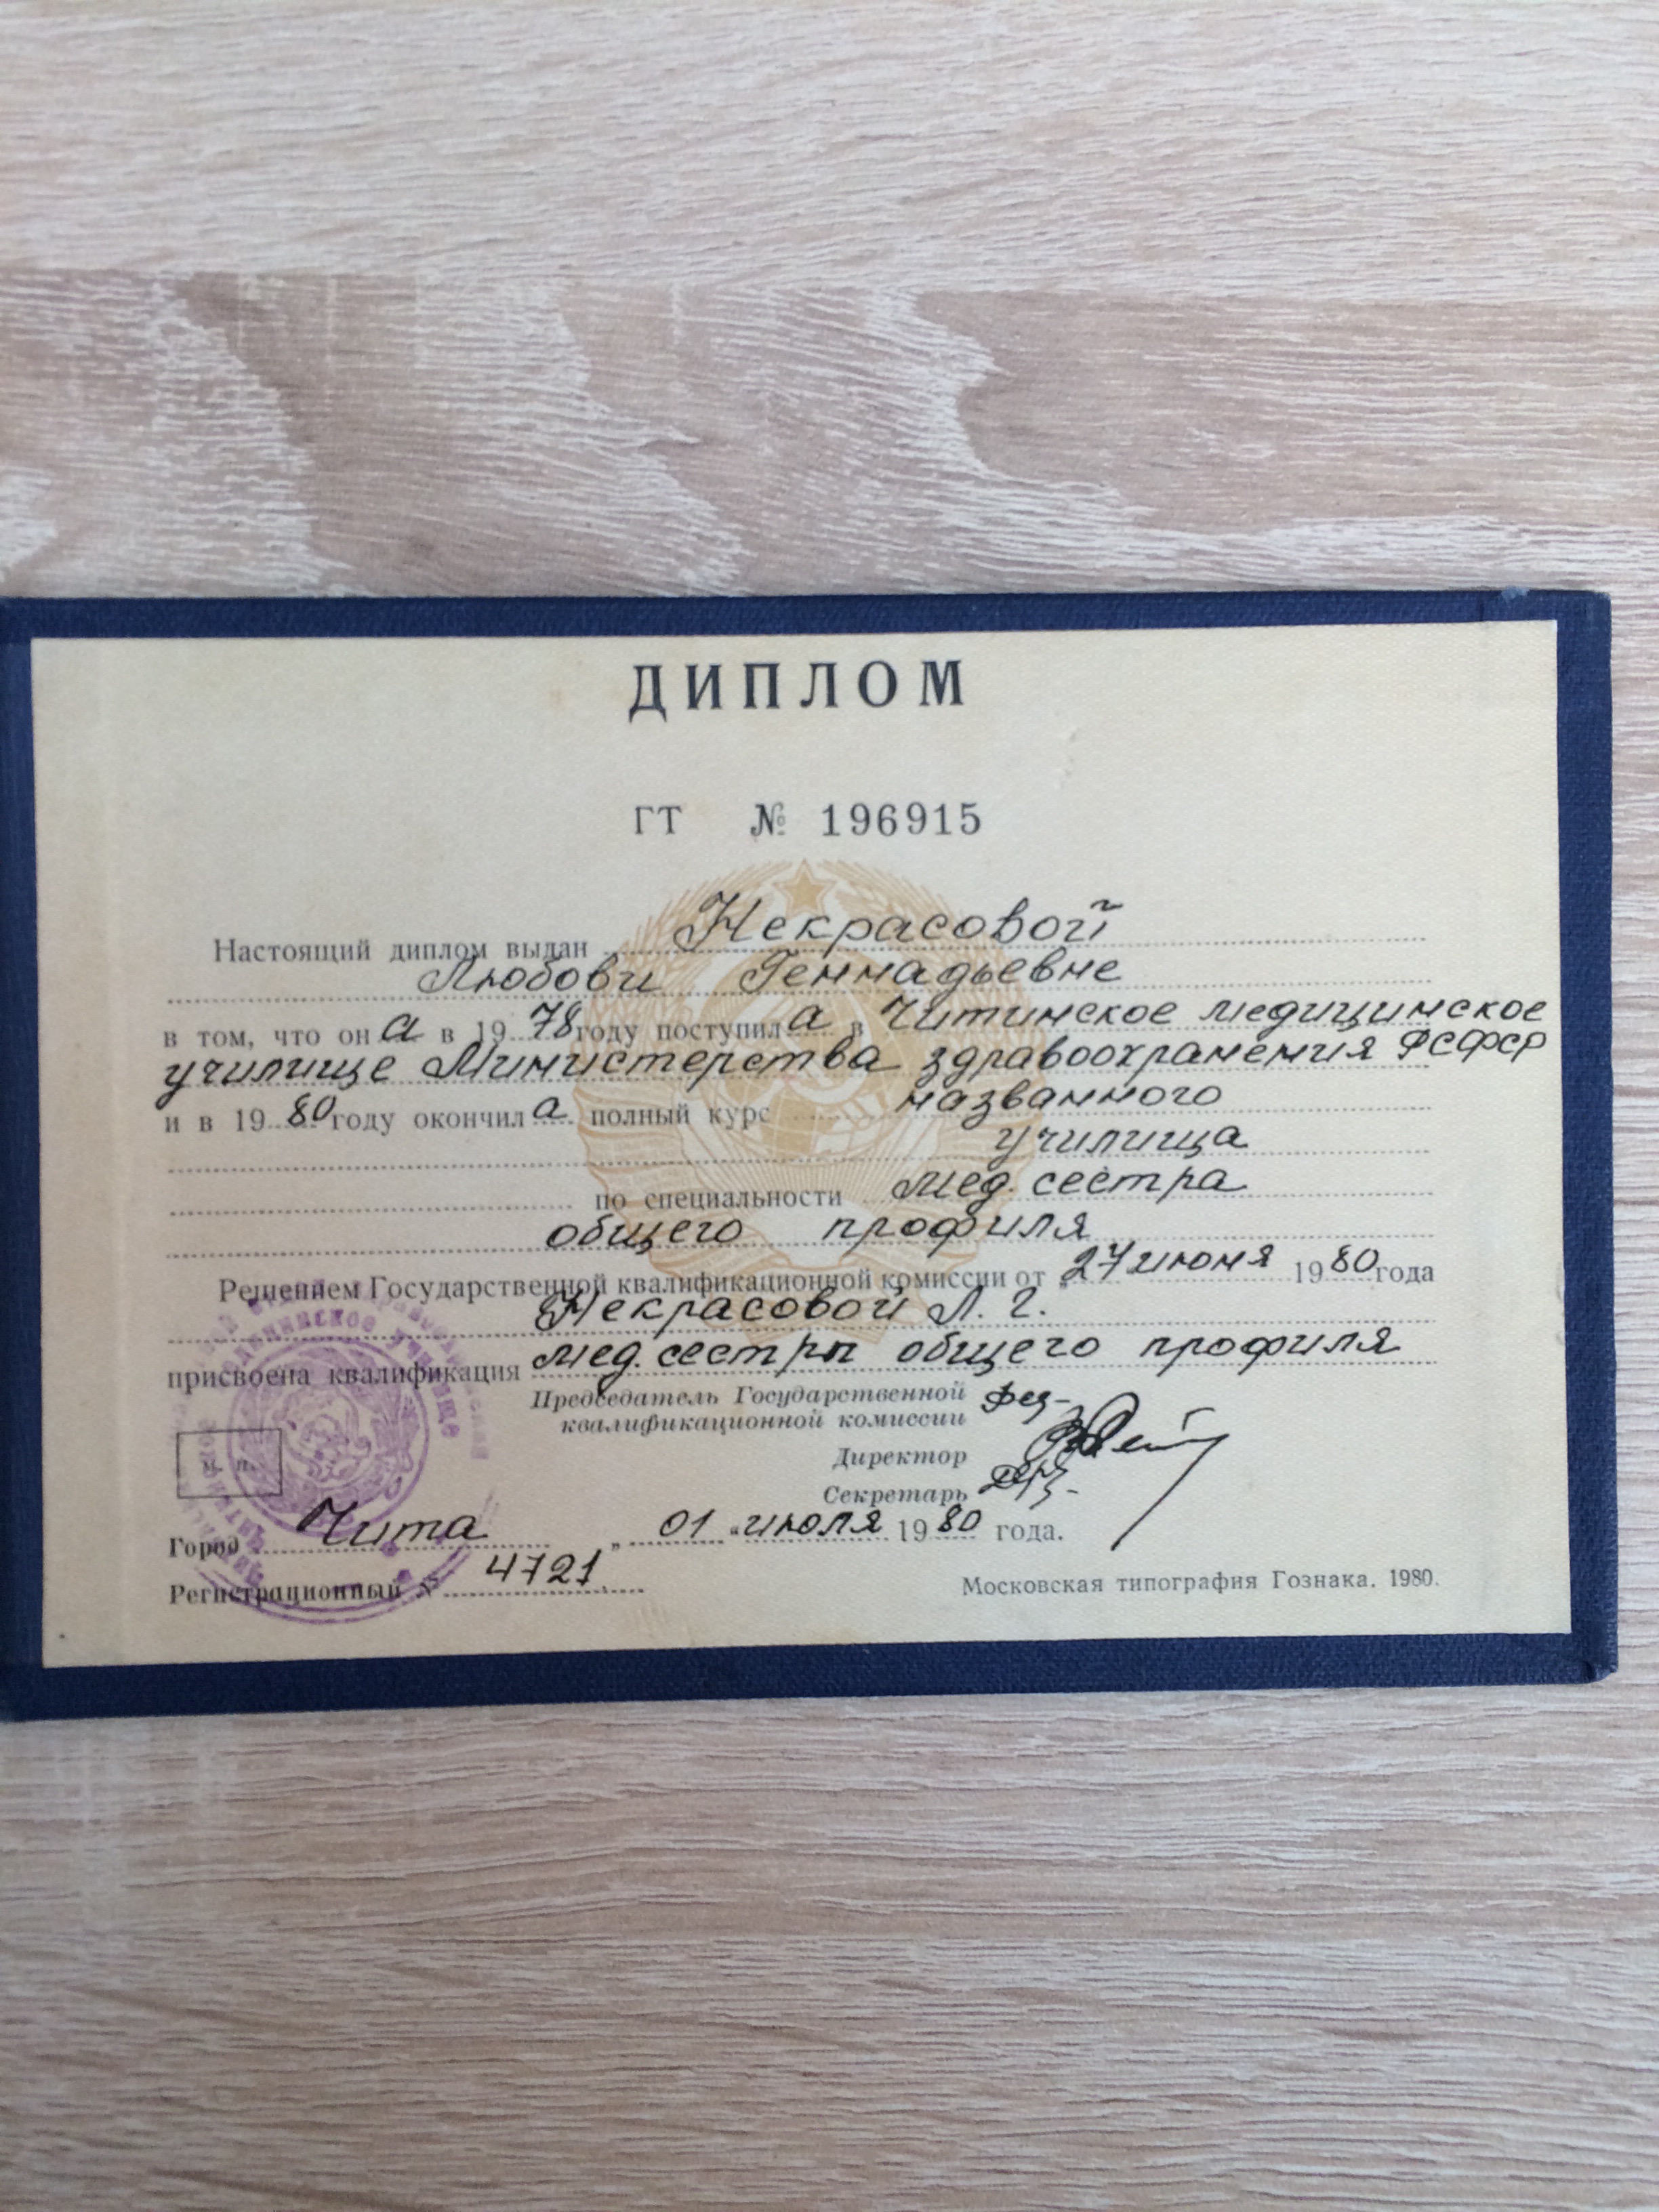 ДИПЛОМ
ГТ № 196915
Настоящий диплом выдан Некрасовой
Любови Геннадьевне
в том, что он а в 19 78 году поступил а в Читинское медицинское
училище Министерства здравоохранения РСФСР
и в 19 80 году окончил а полный курс названного
училища
по специальности мед. сестра
общего профиля
Решением Государственной квалификационной комиссии от „27" июня 19 80 года
Некрасовой Л. Г.
присвоена квалификация мед. сестры общего профиля
Председатель Государственной
квалификационной комиссии
Директор
Секретарь
м. п.
Город Чита „ 01 " июля 19 80 года.
Регистрационный № 4721
Московская типография Гознака. 1980.